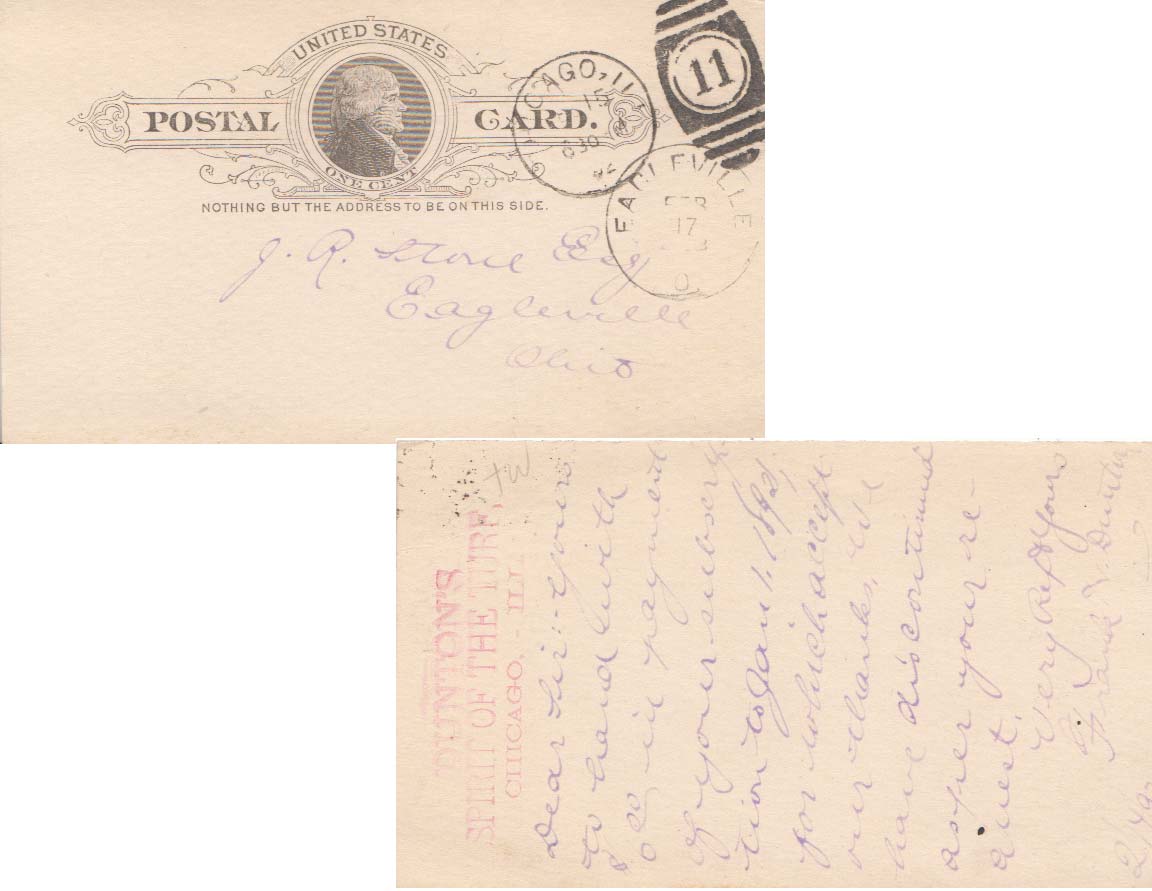 UNITED STATES
POSTAL CARD.
ONE CENT
NOTHING BUT THE ADDRESS TO BE ON THIS SIDE.
CAGO, ILL
630
11
EAGLEVILLE
FEB
17
O
J. R. Stone Esq
Eagleville
Ohio
DUNTON'S
SPIRIT OF THE TURF,
CHICAGO, - ILL
Dear Sir:- Yours
to hand with
in payment
of your subscrip
tion to Jan 1, 1892,
for which accept
our thanks. We
have discontinued
as per your re-
quest.
Very Resp Yours
Frank Dunton